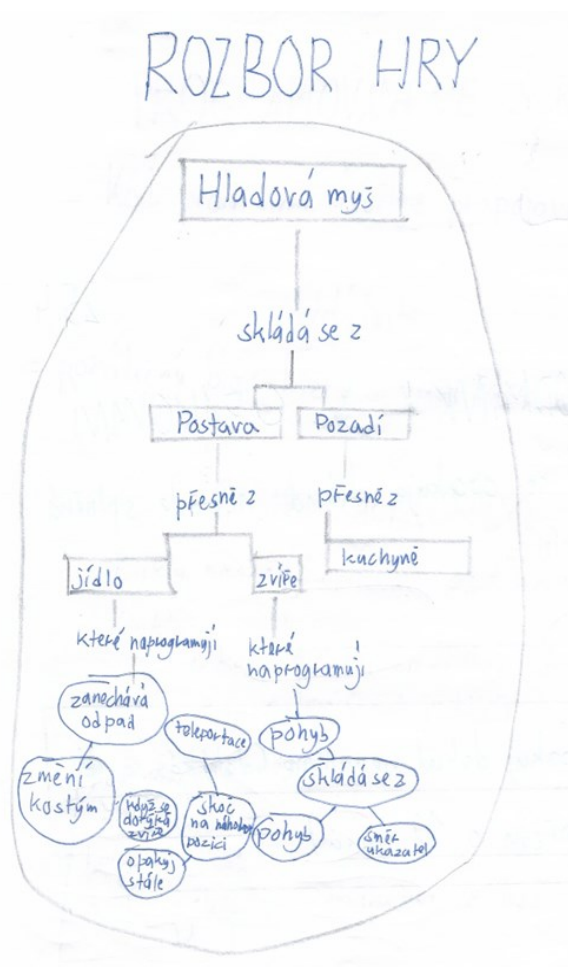 ROZBOR HRY
Hladová myš
skládá se z
Postava
Pozadí
přesně z
přesně z
jídlo
zvíře
kuchyně
které naprogramuji
které
naprogramuji
zanechává
odpad
teleportace
pohyb
změní
kostým
když se
dotýká
zvíře
skoč
na náhodnou
pozici
skládá se z
pohyb
směr
ukazatel
opakuj
stále